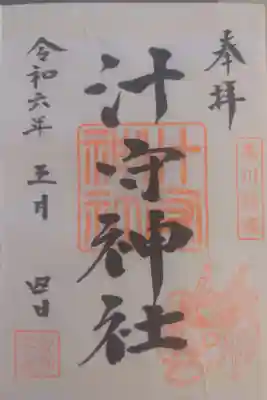 奉拝
汁守神社
令和六年 三月 四日